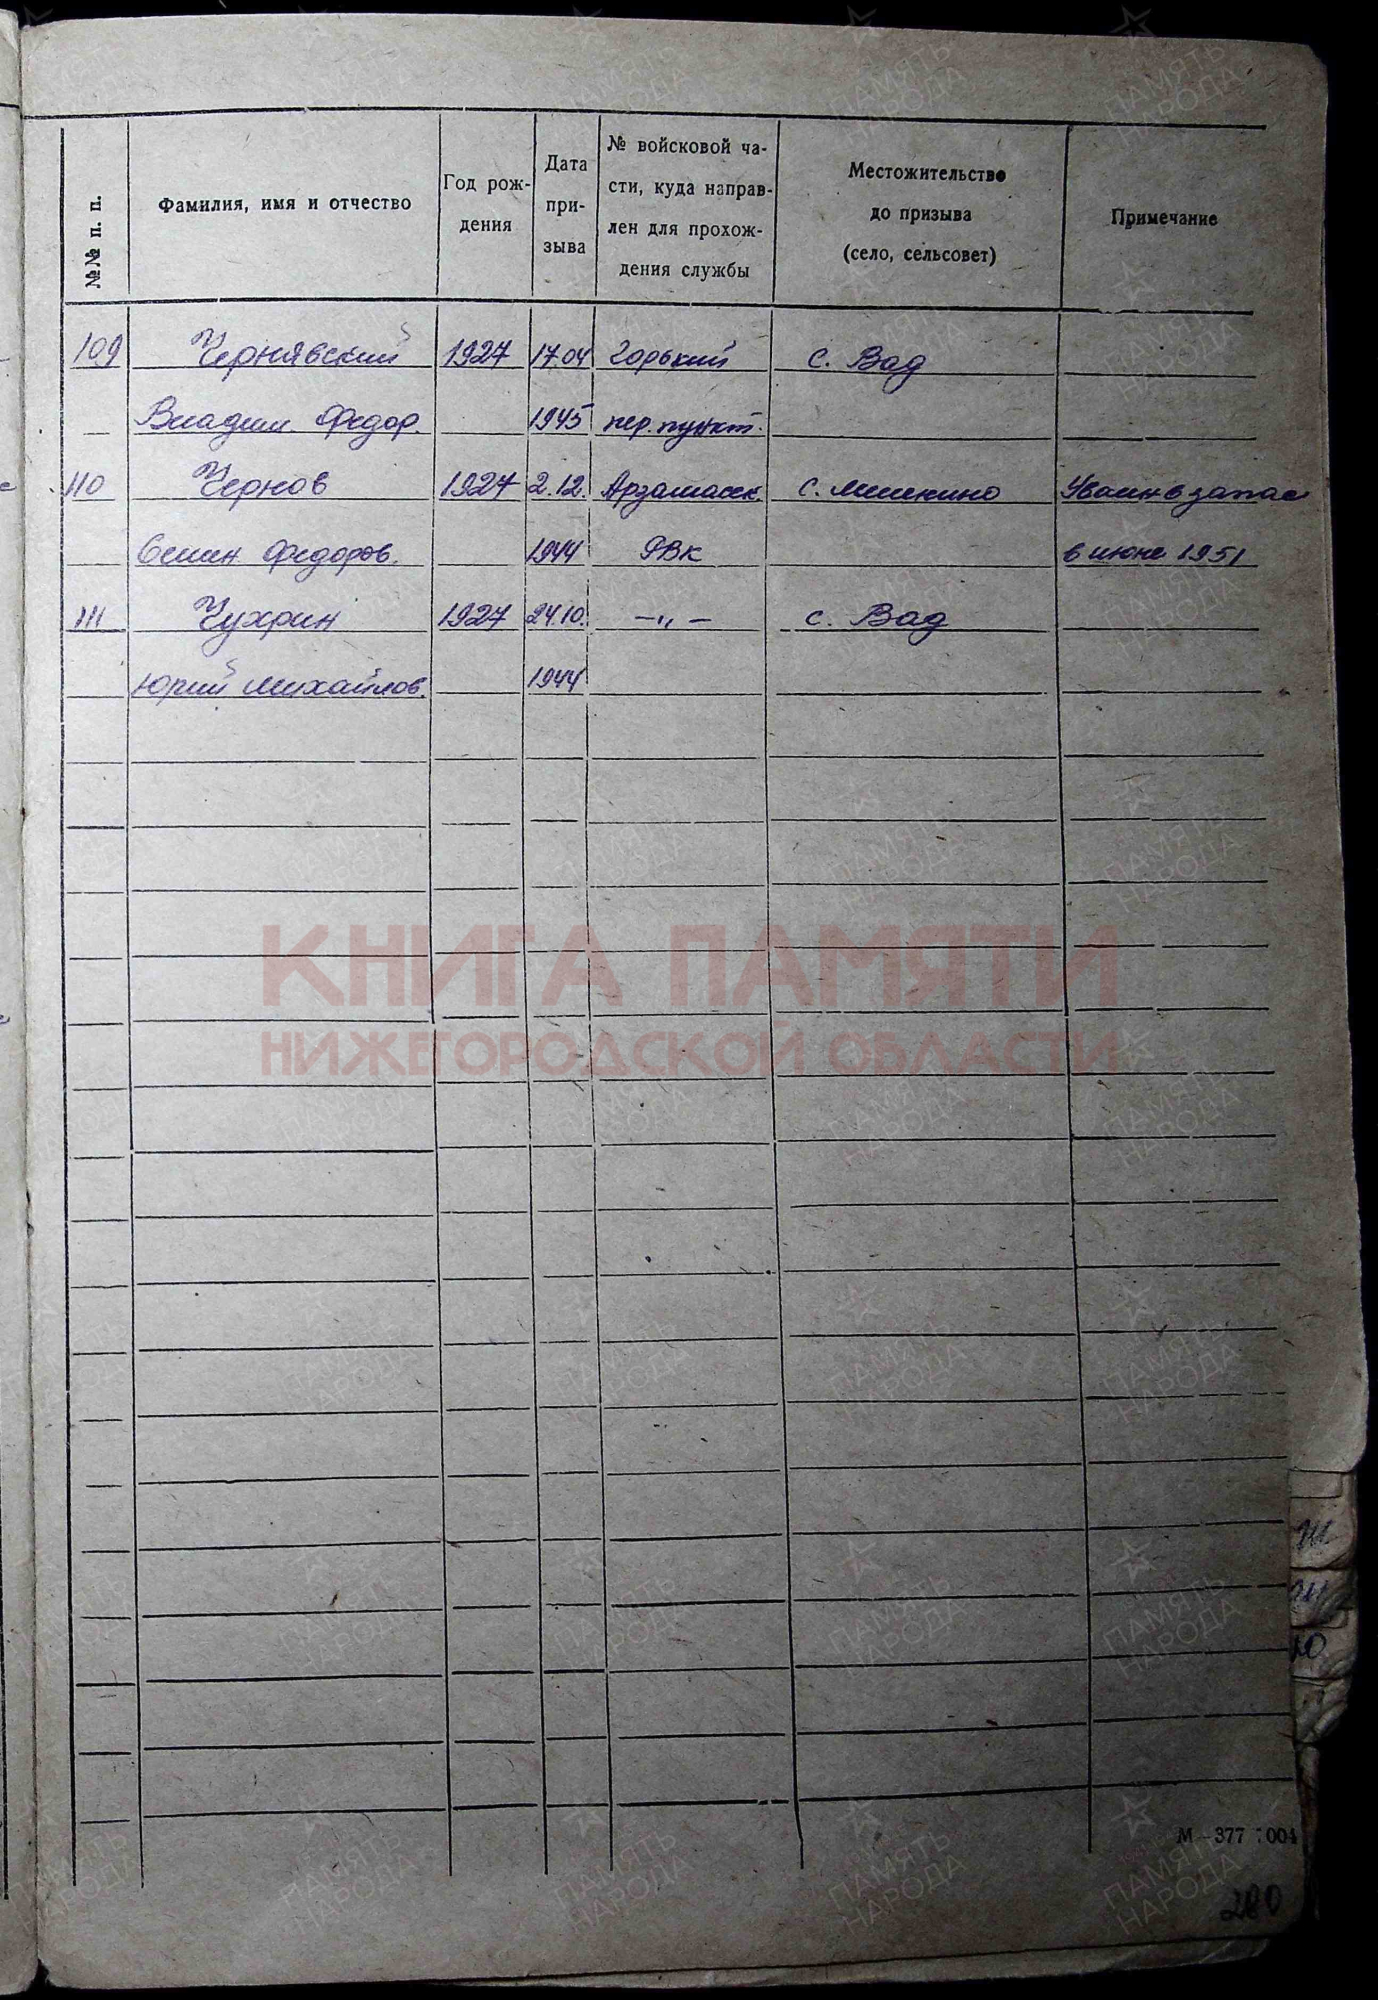 №№ п. п.
Фамилия, имя и отчество
Год рож-
дения
Дата
при-
зыва
№ войсковой ча-
сти, куда направ-
лен для прохож-
дения службы
Местожительство
до призыва
(село, сельсовет)
Примечание
109 Чернявский 1927 17.04 Горький с. Вад
Владим. Федор. 1945 пер. пункт.
110 Чернов 1927 2.12. Арзамасск. с. Лишенино Уволен в запас
Семен Федоров. 1944 РВК в июне 1951
111 Чухрин 1927 24.10. —„— с. Вад
Юрий Михайлов. 1944
КНИГА ПАМЯТИ
НИЖЕГОРОДСКОЙ ОБЛАСТИ
ПАМЯТЬ
НАРОДА
М—377 1004
280